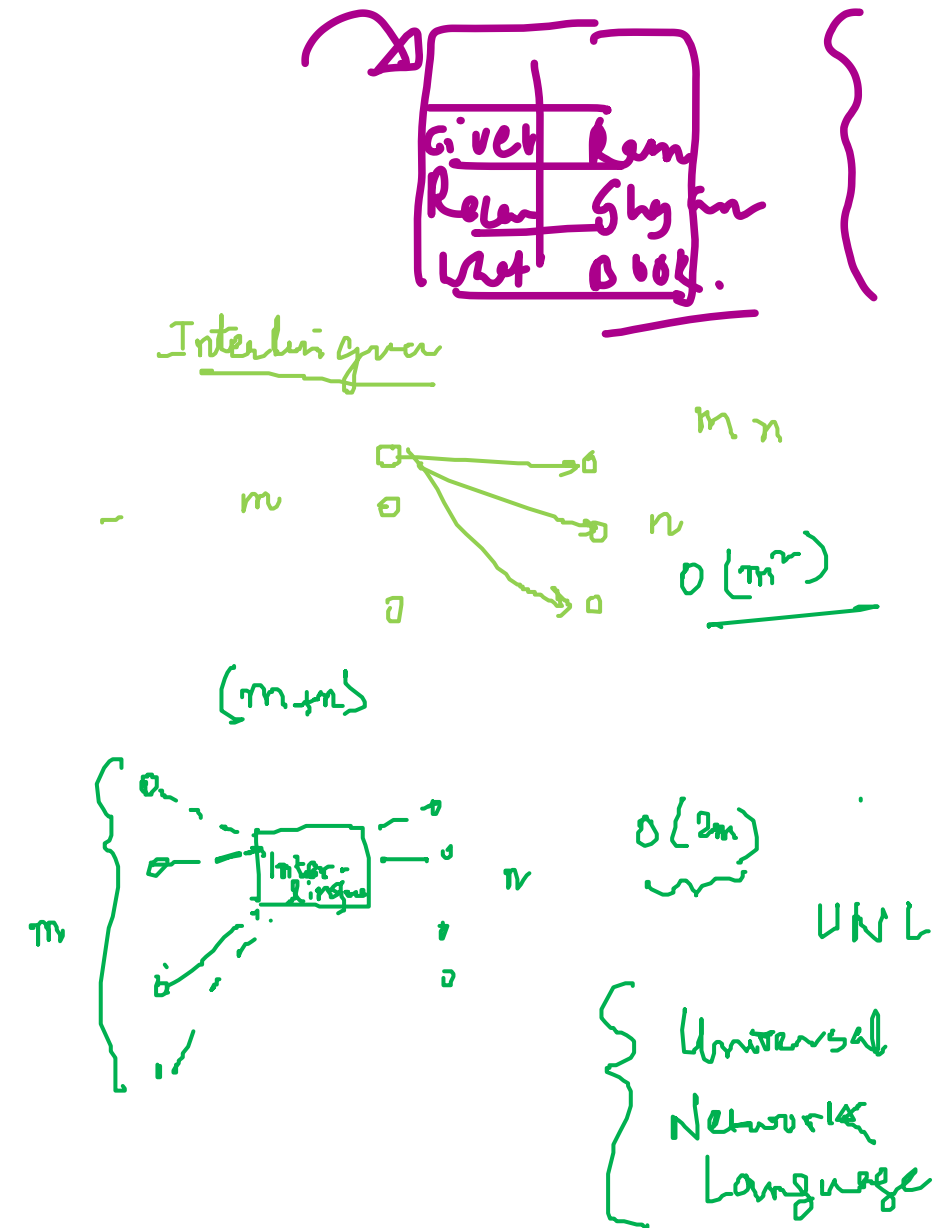 Giver Ram
Recei Shyam
What Book.
Interlingua
m n
m
n
O (m²)
(m+n)
m
Inter-
lingua
n
O (2m)
UNL
Universal
Network
Language